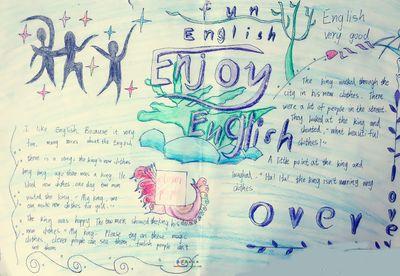 fun
English
Enjoy
English
English
very good
I like English, Because it very
fun, many stories about the English
there is a song: the king's new clothes
long long ago there was a king. He
liked new clothes one day two men
visited the king "My king, we
can make new clothes for you."
The king was happy. The two men showed the king his
new clothes. "My king. Please try on these magic
clothes. clever people can see them. foolish people can't
see them.
The king walked through the
city in his new clothes. There
were a lot of people in the street.
They looked at the king and
shouted, "what beautiful
clothes!"
A little point at the king and
laughed, "Ha! Ha! the king isn't wearing any
clothes.
Over
love